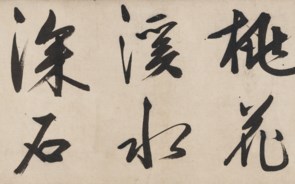 桃花
溪水
深石